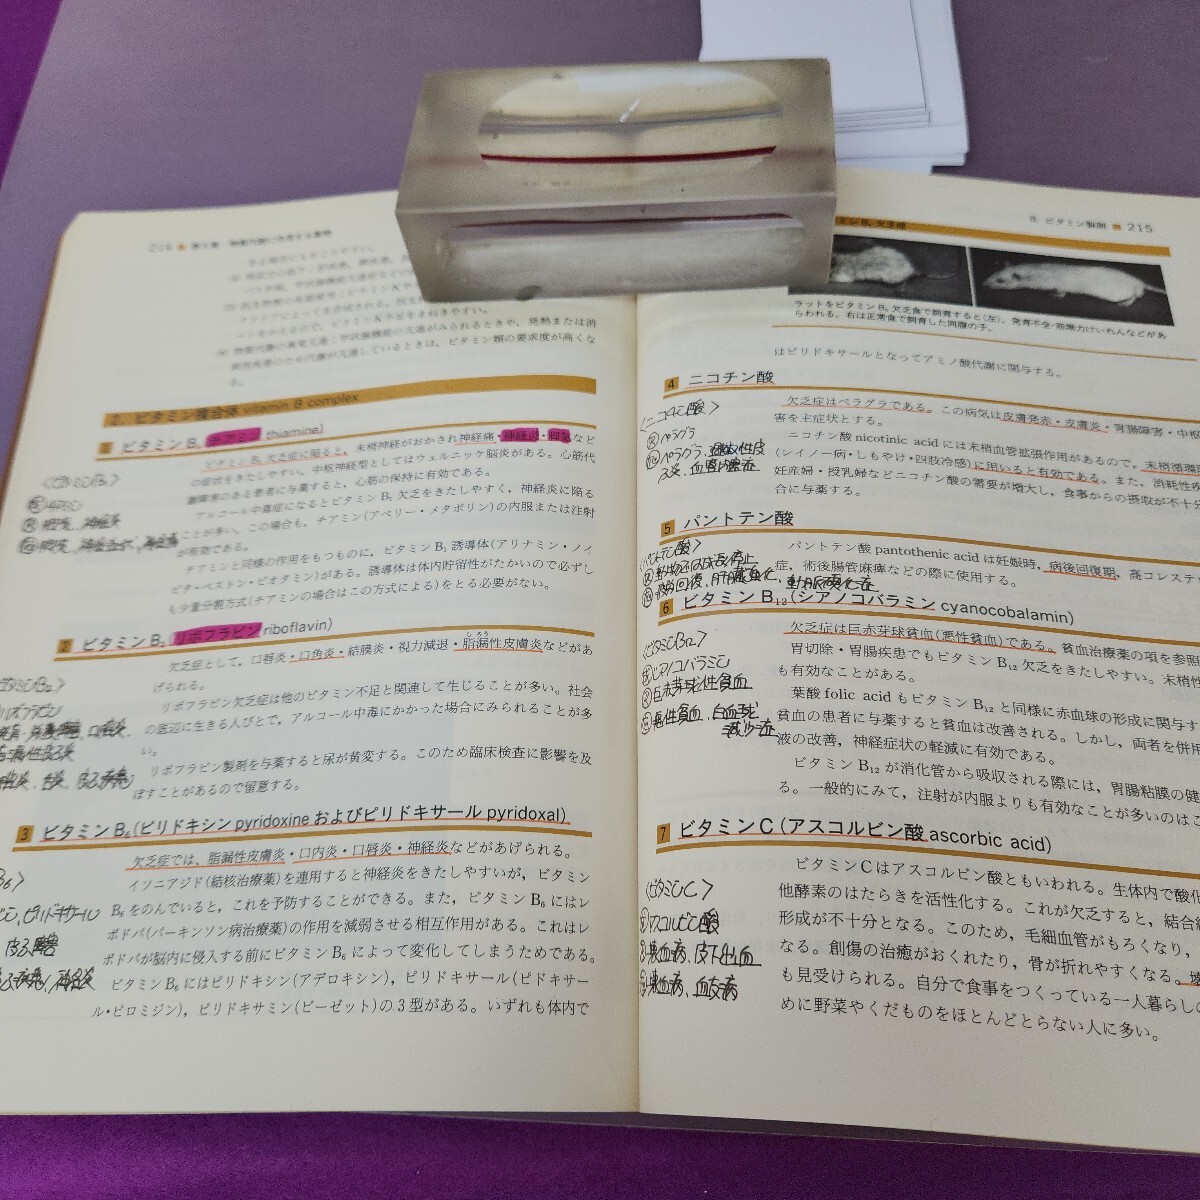 ある場合にもおこりやすい。
ーをかえるので，ビタミンK不足をまねきやすい。
物質代謝の異常亢進：甲状腺機能の亢進がみられるときや，発熱または消
耗性疾患のため代謝が亢進しているときは，ビタミン類の要求度が高くな
る。
2．ビタミンB複合体 vitamin B complex
1 ビタミンB₁(チアミン thiamine)
ビタミンB₁欠乏症に陥ると，末梢神経がおかされ神経痛・神経炎・脚気など
の症状をきたしやすい。中枢神経型としてはウェルニッケ脳炎がある。心筋代
謝障害のある患者に与薬すると，心筋の保持に有効である。
アルコール中毒症になるとビタミンB₁欠乏をきたしやすく，神経炎に陥る
ことが多い。この場合も，チアミン(アベリー・メタボリン)の内服または注射
が有効である。
チアミンと同様の作用をもつものに，ビタミンB₁誘導体(アリナミン・ノイ
ビタ・ベストン・ビオタミン)がある。誘導体は体内貯留性がたかいので必ずし
も少量分割方式(チアミンの場合はこの方式による)をとる必要がない。
2 ビタミンB₂(リボフラビン riboflavin)
欠乏症として，口唇炎・口角炎・結膜炎・視力減退・脂漏性皮膚炎などがあ
げられる。
リボフラビン欠乏症は他のビタミン不足と関連して生じることが多い。社会
の底辺に生きる人びとで，アルコール中毒にかかった場合にみられることが多
い。
リボフラビン製剤を与薬すると尿が黄変する。このため臨床検査に影響を及
ぼすことがあるので留意する。
3 ビタミンB₆(ピリドキシン pyridoxine およびピリドキサール pyridoxal)
欠乏症では，脂漏性皮膚炎・口内炎・口唇炎・神経炎などがあげられる。
イソニアジド(結核治療薬)を連用すると神経炎をきたしやすいが，ビタミン
B₆をのんでいると，これを予防することができる。また，ビタミンB₆にはレ
ボドパ(パーキンソン病治療薬)の作用を減弱させる相互作用がある。これはレ
ボドパが脳内に侵入する前にビタミンB₆によって変化してしまうためである。
ビタミンB₆にはピリドキシン(アデロキシン)，ピリドキサール(ピドキサー
ル・ピロミジン)，ピリドキサミン(ビーゼット)の3型がある。いずれも体内で
B. ビタミン製剤 ■ 215
ラットをビタミンB₆欠乏食で飼育すると(左)，発育不全・筋無力けいれんなどがあ
らわれる。右は正常食で飼育した同腹の子。
はピリドキサールとなってアミノ酸代謝に関与する。
4 ニコチン酸
〈ニコチン酸〉
欠乏症はペラグラである。この病気は皮膚発赤・皮膚炎・胃腸障害・中枢
害を主症状とする。
ニコチン酸 nicotinic acid には末梢血管拡張作用があるので，末梢循環
(レイノー病・しもやけ・四肢冷感)に用いると有効である。また，消耗性疾
妊産婦・授乳婦などニコチン酸の需要が増大し，食事からの摂取が不十分
合に与薬する。
5 パントテン酸
〈パントテン酸〉
パントテン酸 pantothenic acid は妊娠時，病後回復期，高コレステ
症，術後腸管麻痺などの際に使用する。
6 ビタミンB₁₂(シアノコバラミン cyanocobalamin)
〈ビタミンB₁₂〉
シアノコバラミン
巨赤芽球性貧血
悪性貧血、白血球
減少症
欠乏症は巨赤芽球貧血(悪性貧血)である。貧血治療薬の項を参照
胃切除・胃腸疾患でもビタミンB₁₂欠乏をきたしやすい。末梢性
も有効なことがある。
葉酸 folic acid もビタミンB₁₂と同様に赤血球の形成に関与す
貧血の患者に与薬すると貧血は改善される。しかし，両者を併用
液の改善，神経症状の軽減に有効である。
ビタミンB₁₂が消化管から吸収される際には，胃腸粘膜の健
る。一般的にみて，注射が内服よりも有効なことが多いのはこ
7 ビタミンC(アスコルビン酸 ascorbic acid)
〈ビタミンC〉
アスコルビン酸
壊血病、皮下出血
壊血病、血友病
ビタミンCはアスコルビン酸ともいわれる。生体内で酸化
他酵素のはたらきを活性化する。これが欠乏すると，結合組
形成が不十分となる。このため，毛細血管がもろくなり，
なる。創傷の治癒がおくれたり，骨が折れやすくなる。壊
も見受けられる。自分で食事をつくっている一人暮らしの
めに野菜やくだものをほとんどとらない人に多い。